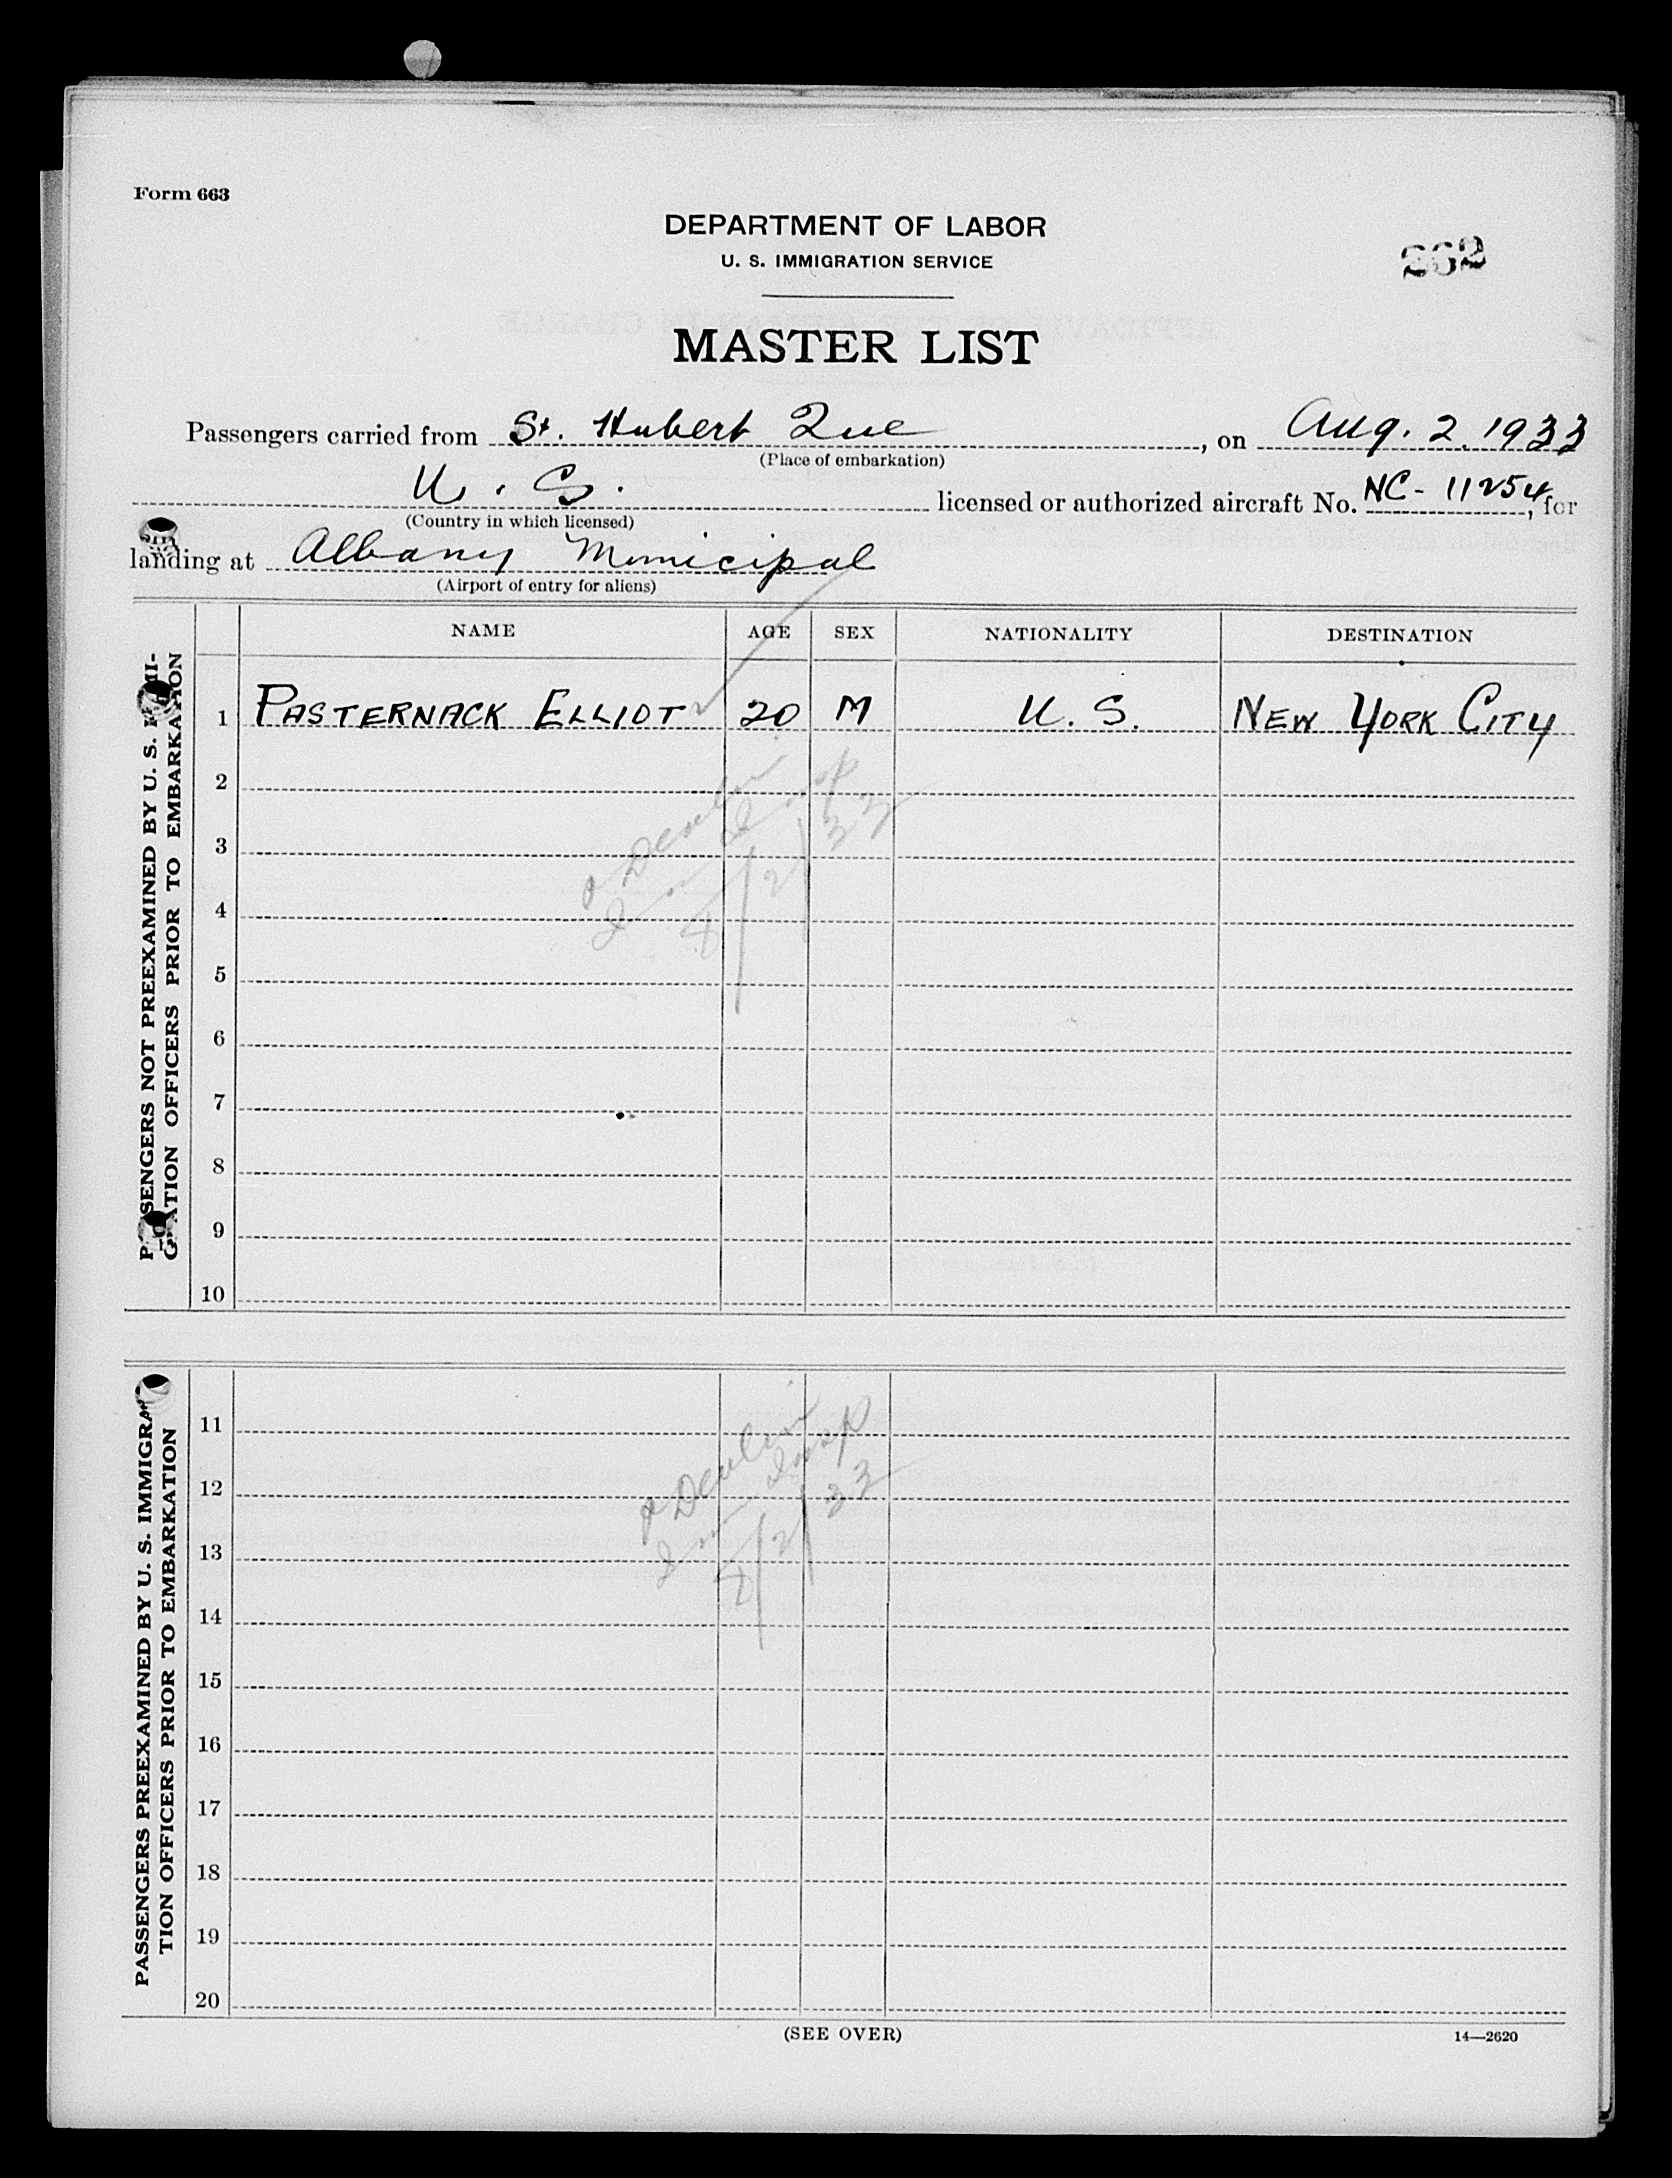 Form 663
DEPARTMENT OF LABOR
U. S. IMMIGRATION SERVICE
262
MASTER LIST
Passengers carried from St. Hubert Que, on Aug. 2. 1933
(Place of embarkation)
U. S. licensed or authorized aircraft No. NC- 11254, for
(Country in which licensed)
landing at Albany Municipal
(Airport of entry for aliens)
NAME AGE SEX NATIONALITY DESTINATION
PASSENGERS NOT PREEXAMINED BY U. S. IMMI-
GRATION OFFICERS PRIOR TO EMBARKATION
1 PASTERNACK ELLIOT 20 M U. S. NEW YORK CITY
2
3
4
5
6
7
8
9
10
Devlin
Imm Insp
8/2/33
PASSENGERS PREEXAMINED BY U. S. IMMIGRA-
TION OFFICERS PRIOR TO EMBARKATION
11
12
13
14
15
16
17
18
19
20
Devlin
Imm Insp
8/2/33
(SEE OVER)
14—2620